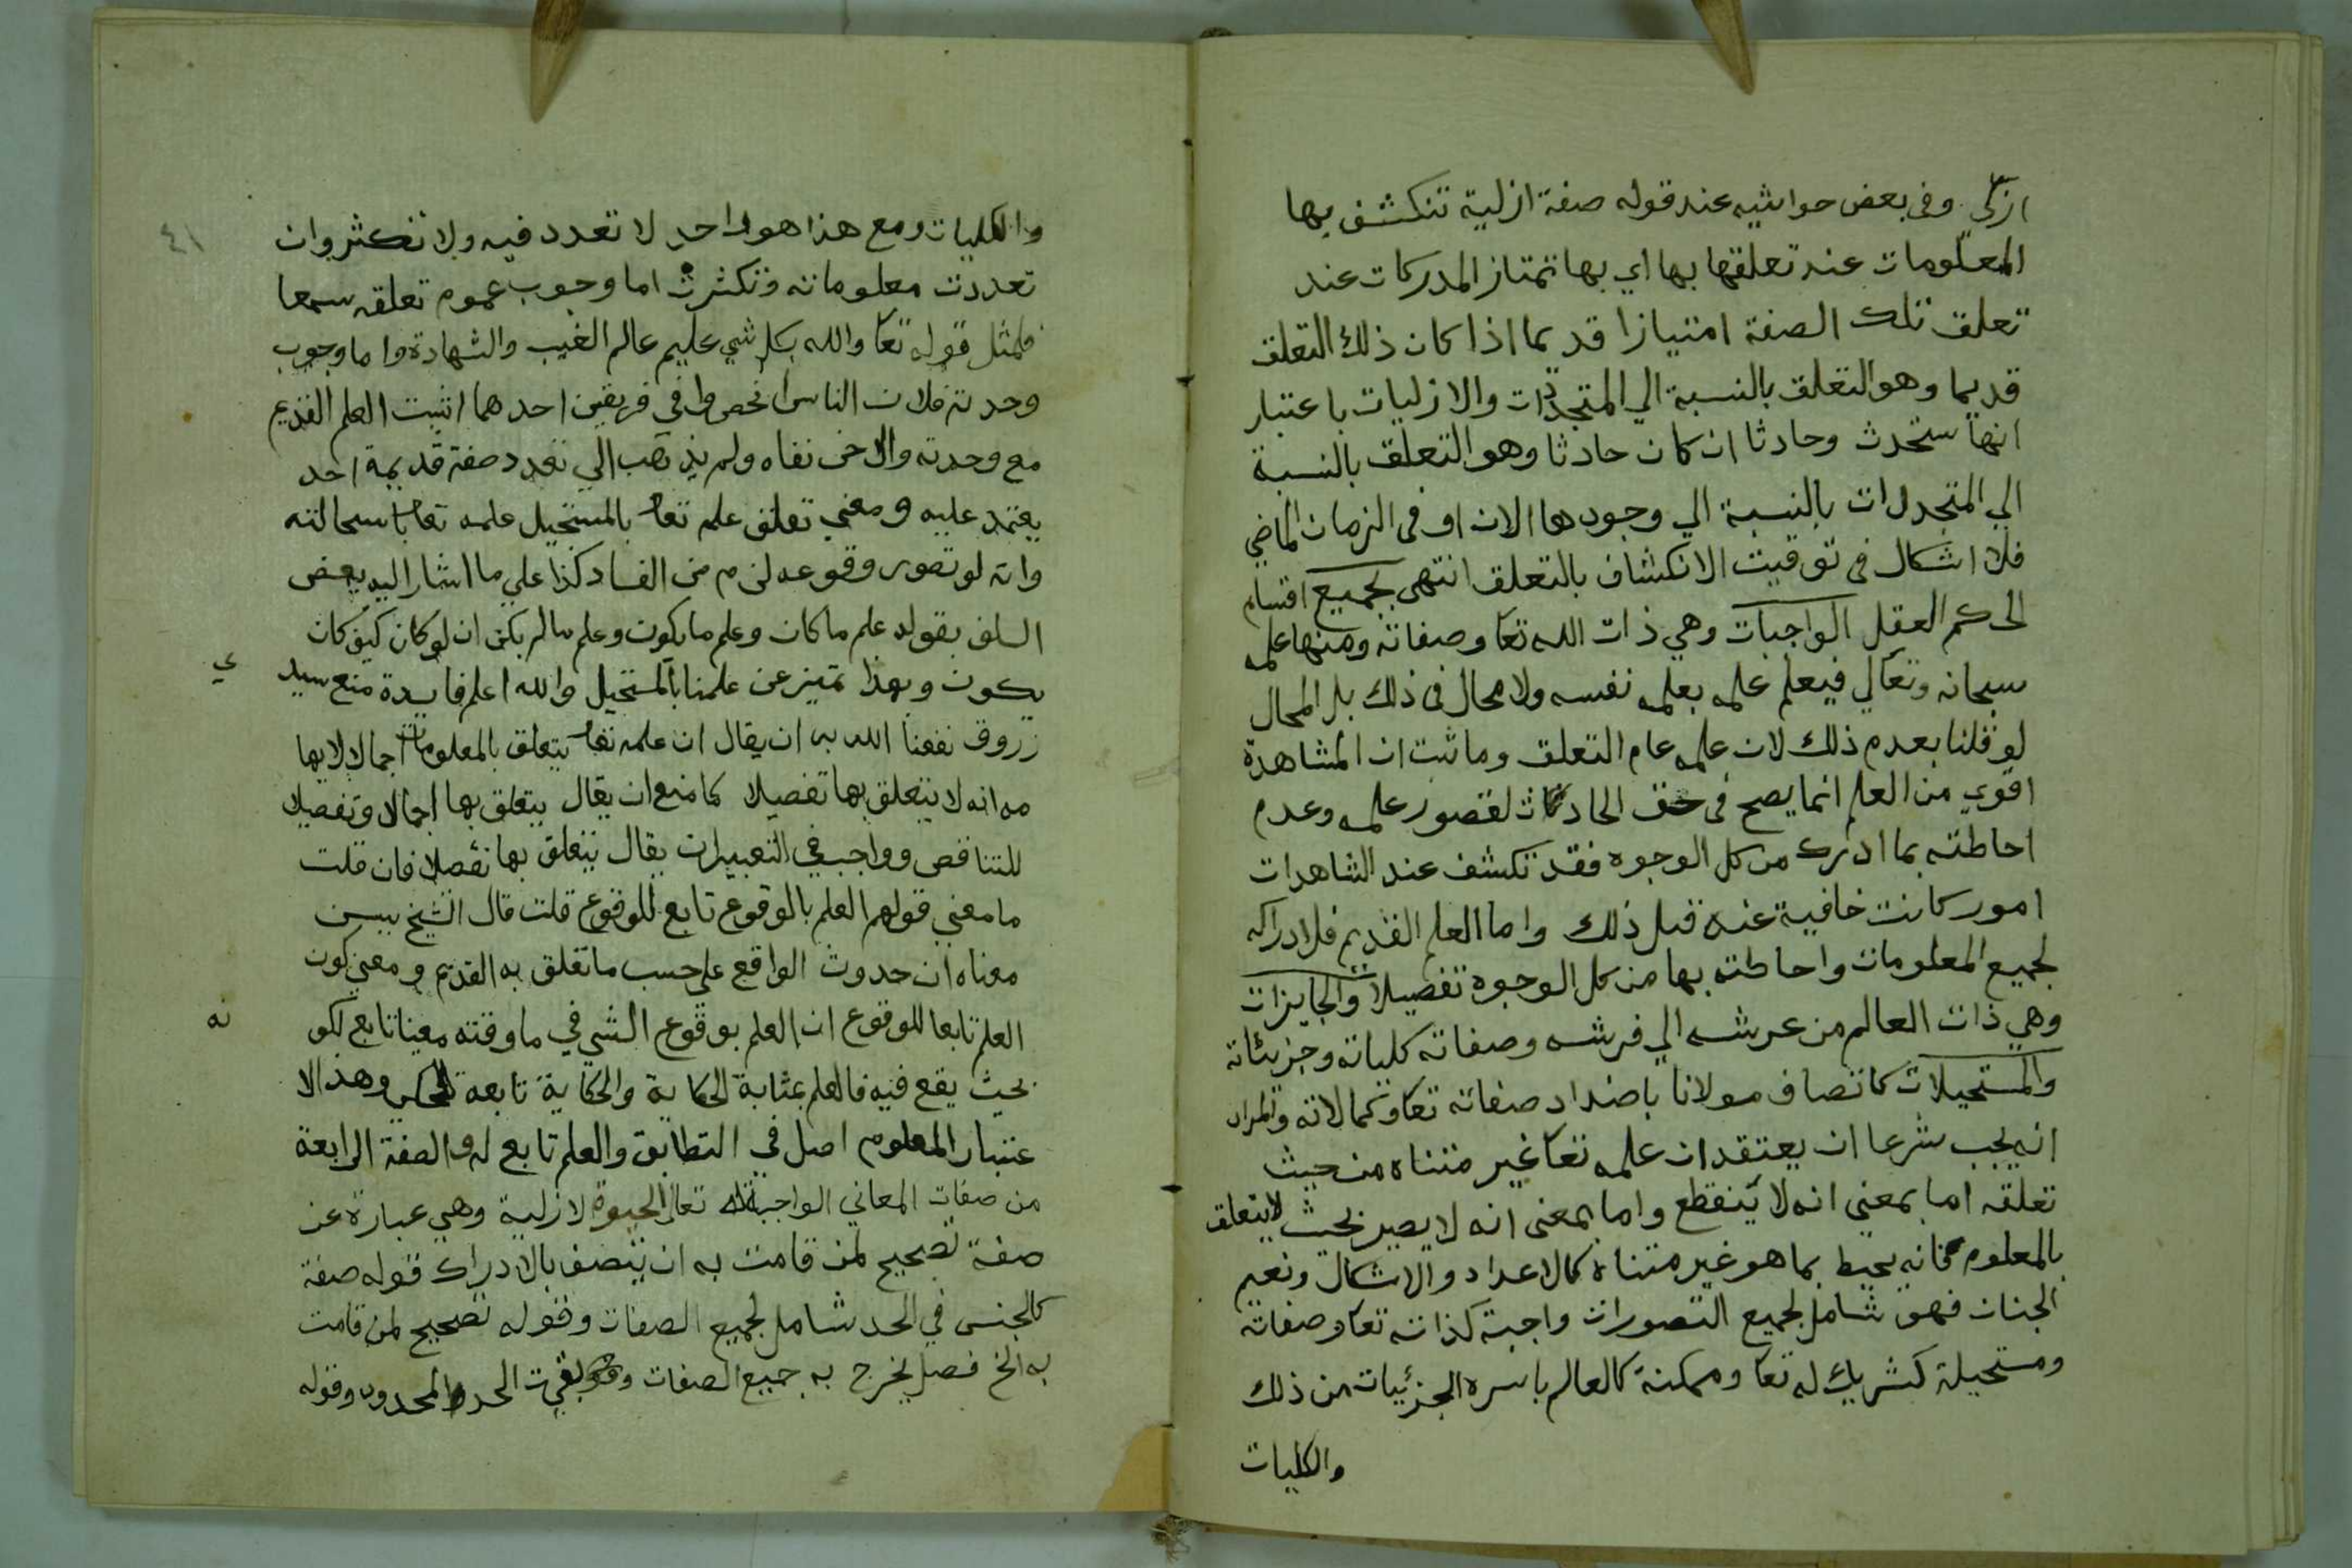 ازلي وفي بعض حواشيه عند قوله صفة ازلية تنكشف بها
المعلومات عند تعلقها بها اي بها تمتاز المدركات عند
تعلق تلك الصفة امتيازا قديما اذا كان ذلك التعلق
قديما وهو التعلق بالنسبة الي المتجددات والازليات باعتبار
انها ستحدث وحادثا ان كان حادثا وهو التعلق بالنسبة
الي المتجددات بالنسبة الي وجودها الان او في الزمان الماضي
فلا اشكال في توقيت الانكشاف بالتعلق انتهى بجميع اقسام
الحكم العقل الواجبات وهي ذات الله تعا وصفاته ومنها علمه
سبحانه وتعالي فيعلم علمه بعلمه نفسه ولا محال في ذلك بل المحال
لو قلنا بعدم ذلك لان علمه عام التعلق وما ثبت ان المشاهدة
اقوي من العلم انما يصح في حق الحادث لقصور علمه وعدم
احاطته بما ادرك من كل الوجوه فقد تكشف عند الشاهدات
امور كانت خافية عنه قبل ذلك واما العلم القديم فلادراكه
لجميع المعلومات واحاطته بها من كل الوجوه تفصيلا والجايزات
وهي ذات العالم من عرشه الي فرشه وصفاته كلياته وجزيئاته
والمستحيلات كاتصاف مولانا باضداد صفاته تعا وكمالاته والمراد
انه يجب شرعا ان يعتقد ان علمه تعا غير متناه من حيث
تعلقه اما بمعنى انه لا ينقطع واما بمعنى انه لا يصير بحيث لا يتعلق
بالمعلوم فانه يحيط بما هو غير متناه كالاعداد والاشكال ونعيم
الجنات فهو شامل لجميع التصورات واجبة كذاته تعا وصفاته
ومستحيلة كشريك له تعا وممكنة كالعالم باسره الجزئيات من ذلك
والكليات
٤١
والكليات ومع هذا هو واحد لا تعدد فيه ولا تكثر وان
تعددت معلوماته وتكثرت اما وجوب عموم تعلقه سمعا
فلمثل قوله تعا والله بكل شي عليم عالم الغيب والشهادة واما وجوب
وحدته فلان الناس انحصروا في فريقين احدهما اثبت العلم القديم
مع وحدته والاخر نفاه ولم يذهب الي تعدد صفة قديمة احد
يعتمد عليه ومعني تعلق علمه تعا بالمستحيل علمه تعا باستحالته
وانه لو تصور وقوعه لزم من الفساد كذا علي ما اشار اليه بعض
السلف بقوله علم ما كان وعلم ما يكون وعلم ما لم يكن ان لو كان كيف كان
يكون وبهذا تميز عن علمنا بالمستحيل والله اعلم فايدة منع سيد
ي
زروق نفعنا الله به ان يقال ان علمه تعا يتعلق بالمعلومات اجمالا لايها
مه انه لا يتعلق بها تفصيلا كما منع ان يقال يتعلق بها اجمالا وتفصيلا
للتناقص وواجب في التعبيرات يقال يتعلق بها تفصيلا فان قلت
ما معني قولهم العلم بالوقوع تابع للوقوع قلت قال الشيخ يسن
معناه ان حدوث الواقع علي حسب ما تعلق به القديم ومعني كون
العلم تابعا للوقوع ان العلم بوقوع الشي في ما وقته معينا تابع لكو
نه
بحيث يقع فيه فالعلم بمثابة الحكاية والحكاية تابعة للمحكي وهذا الا
عتبار المعلوم اصل في التطابق والعلم تابع له والصفة الرابعة
من صفات المعاني الواجبة له تعالي الحيوة الازلية وهي عبارة عن
صفة تصحيح لمن قامت به ان يتصف بالادراك قوله صفة
كالجنس في الحد شامل لجميع الصفات وقوله تصحيح لمن قامت
به الخ فصل يخرج به جميع الصفات وبقيت الحد والمحدود وقوله